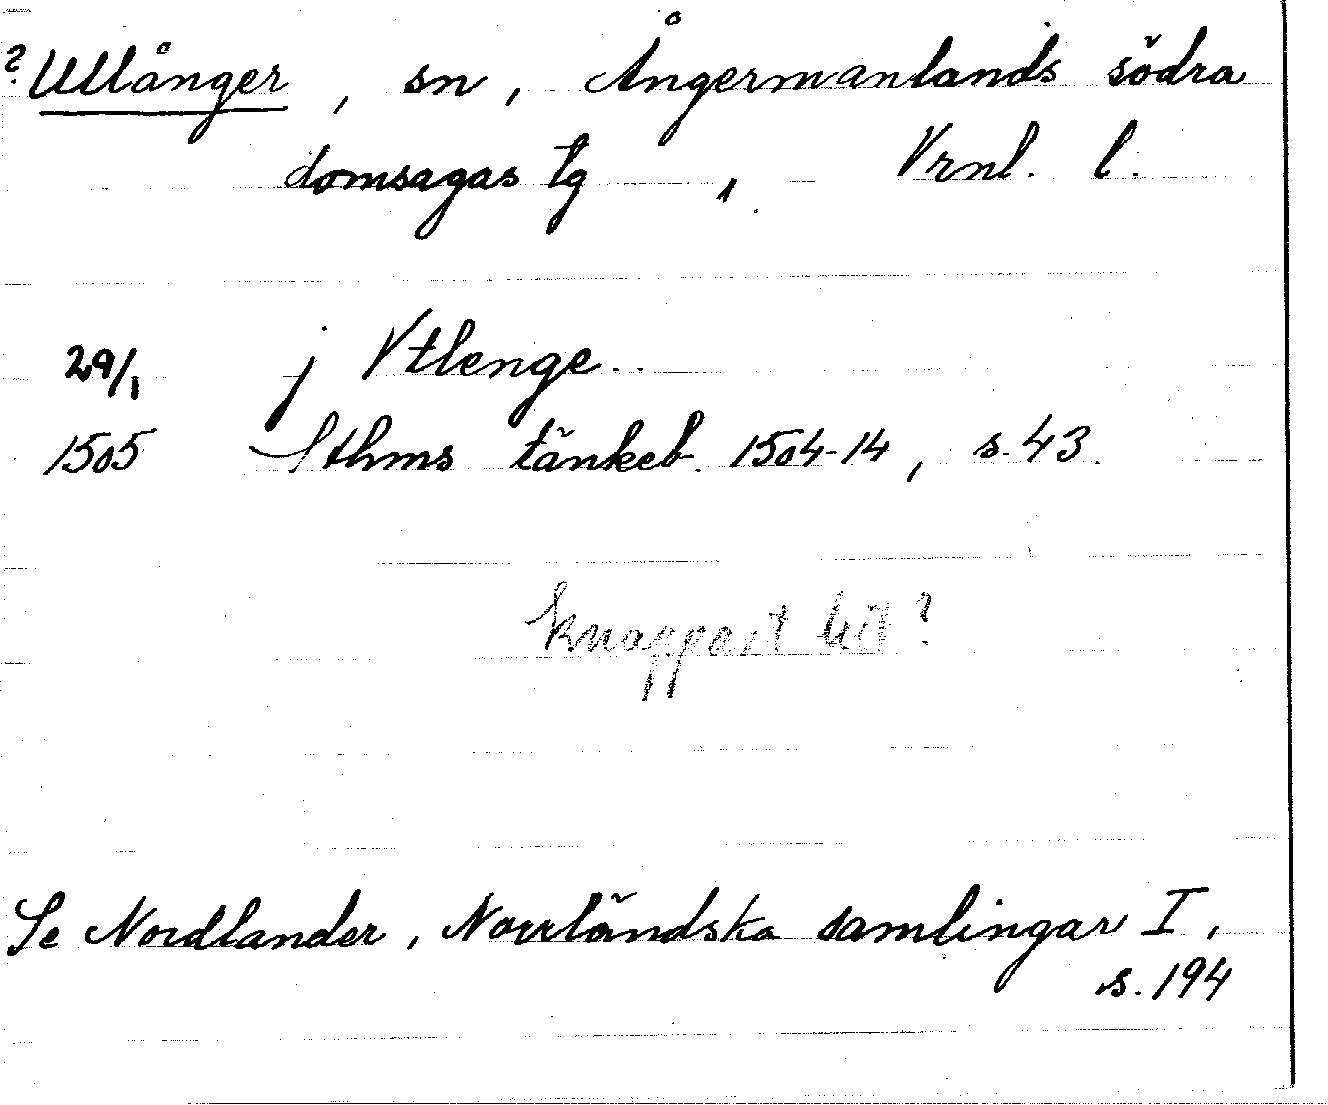 ? Ullånger, sn, Ångermanlands södra
domsagas tg, Vrnl. l.
29/1 j Vtlenge
1505 Sthms tänkeb. 1504-14, s. 43.
Knappast hit?
Se Nordlander, Norrländska samlingar I,
s. 194